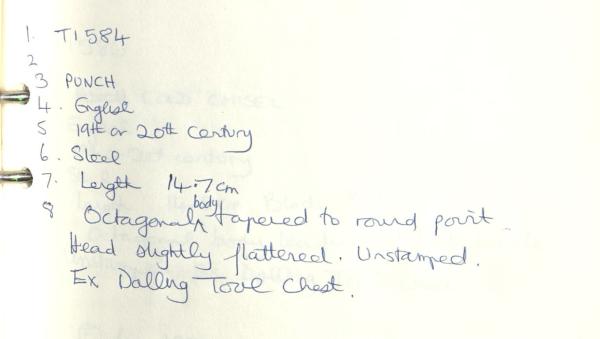 1. T1584
2
3 PUNCH
4. English
5 19th or 20th Century
6. Steel
7. Length 14.7cm
8 Octagonal body tapered to round point.
Head slightly flattered. Unstamped.
Ex Dalling Tool Chest.